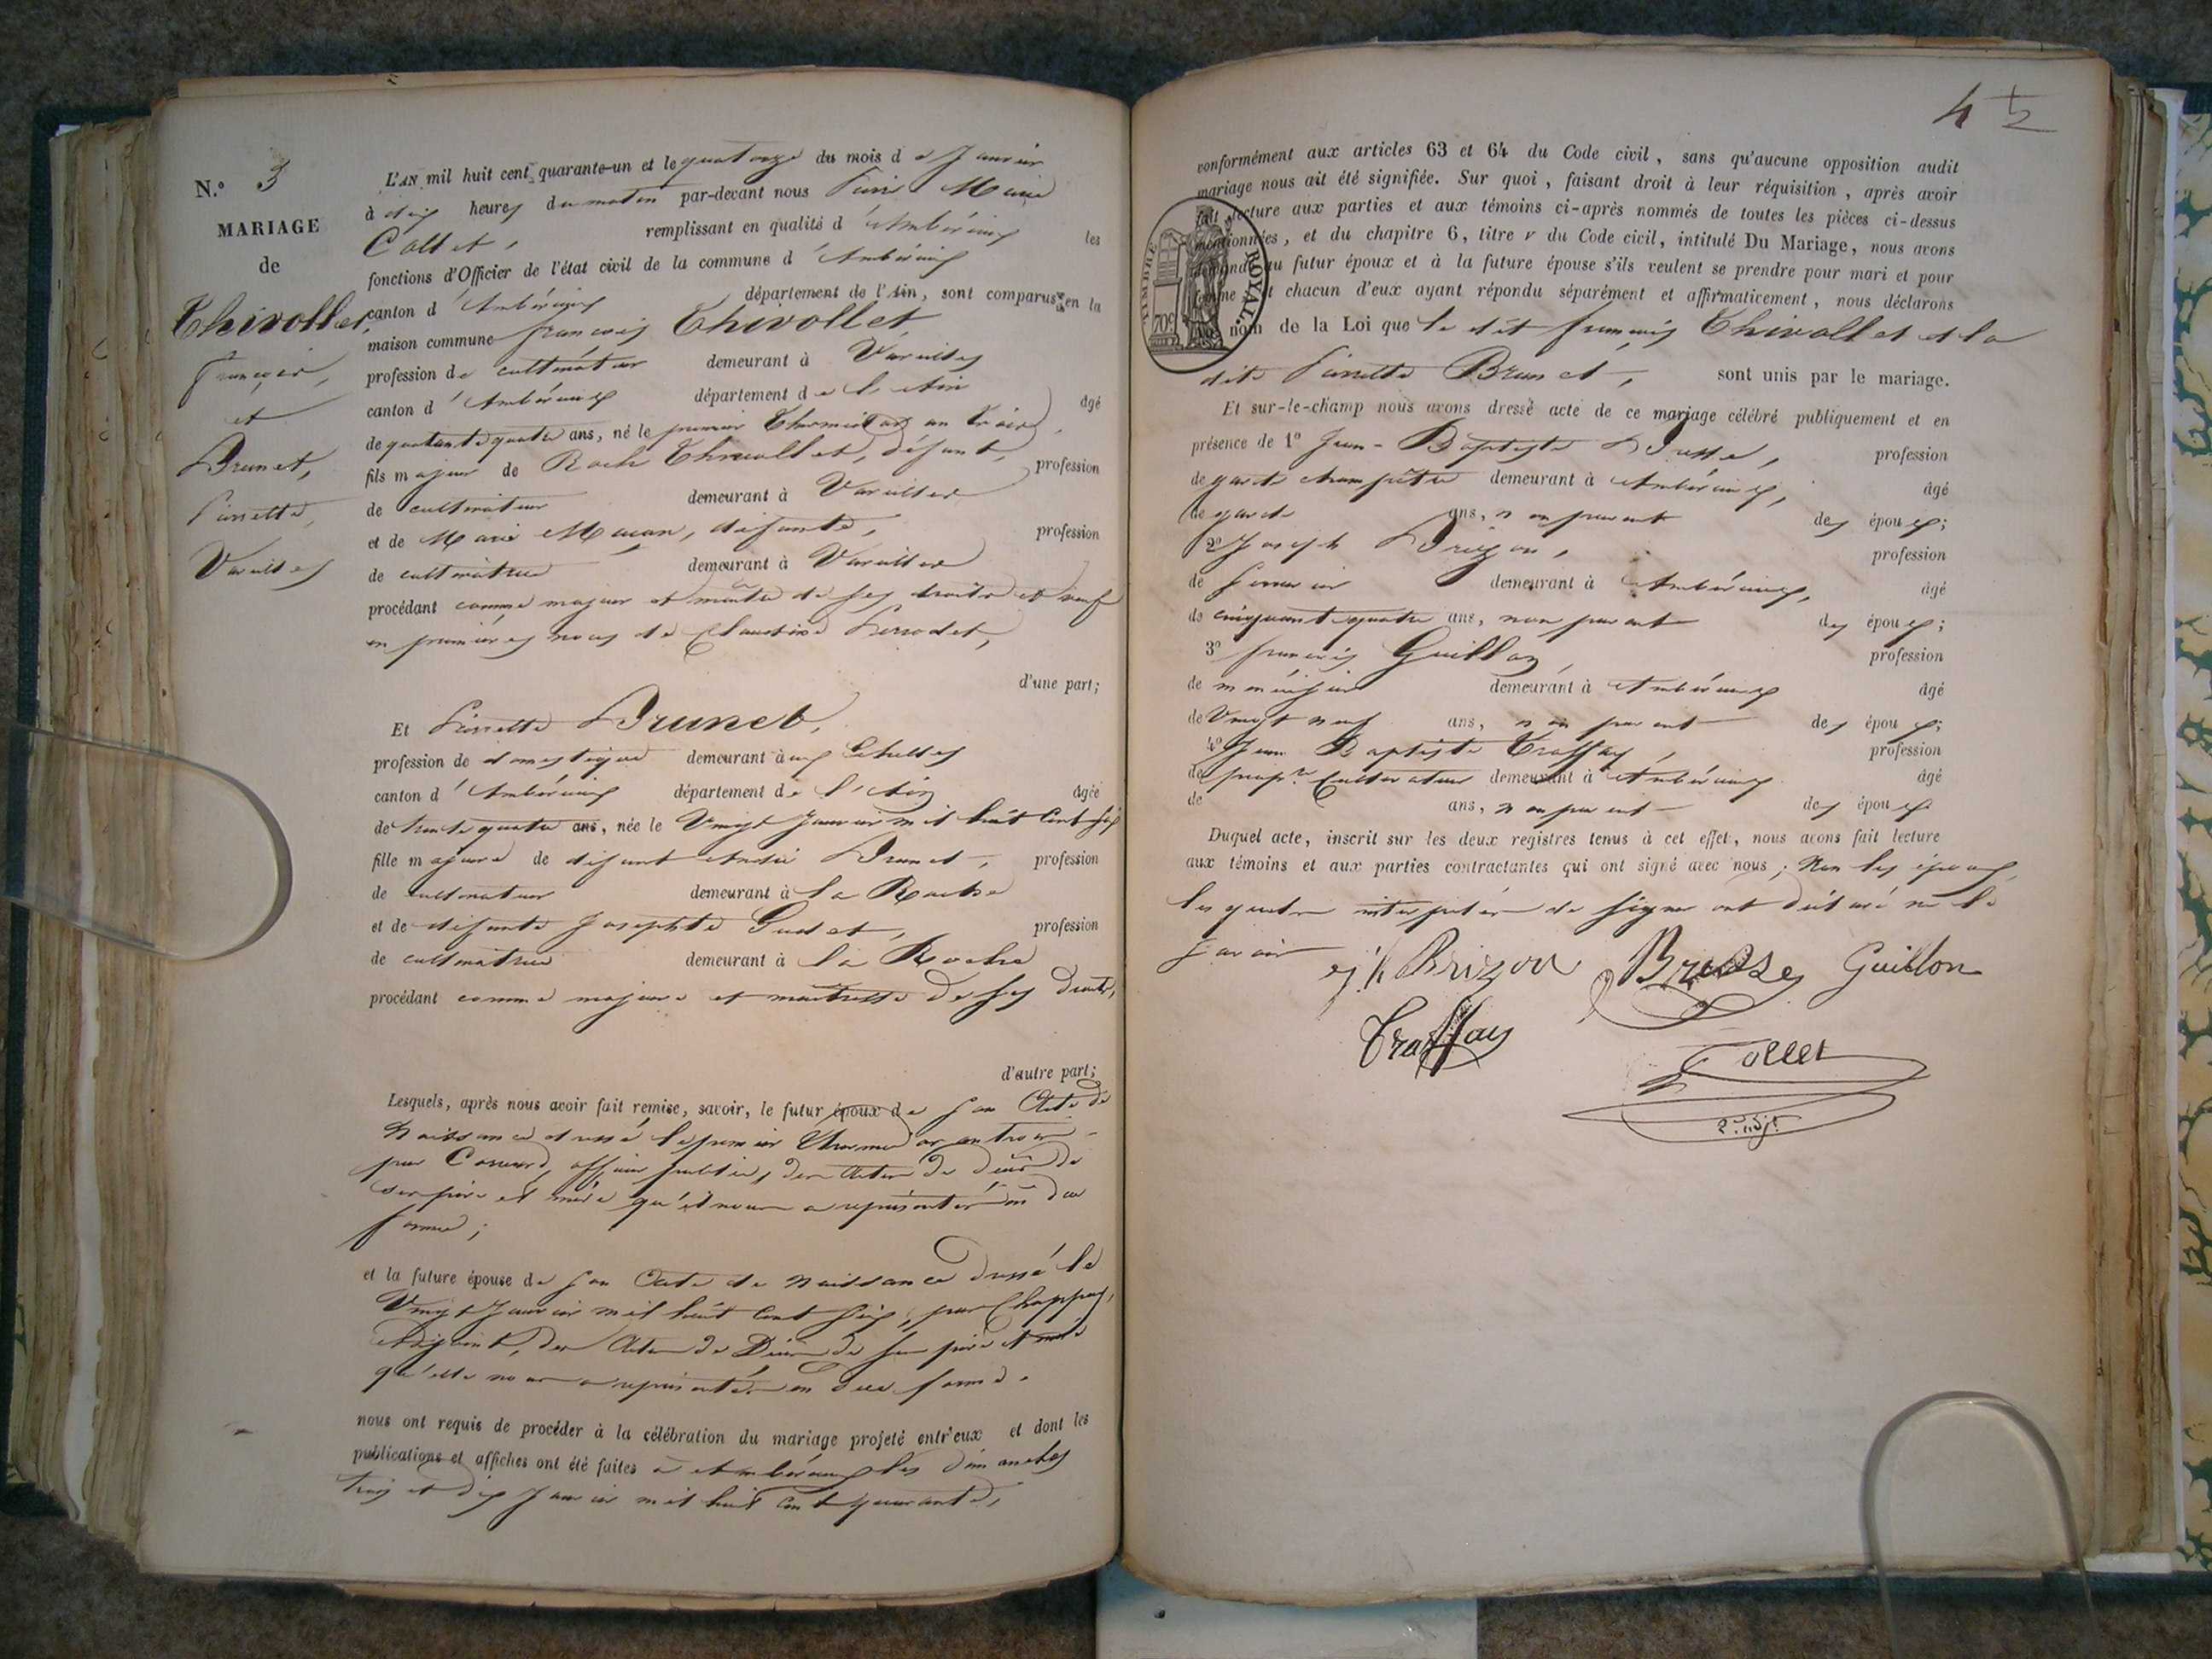 N.o 3
MARIAGE
de
Thivollet,
François,
et
Brunet,
Pierrette,
Vareilles
L'AN mil huit cent quarante-un et le quatorze du mois de Janvier
à dix heures du matin par-devant nous Pierre Marie
Collet, remplissant en qualité d' les
fonctions d'Officier de l'état civil de la commune d'Ambérieux
canton d'Ambérieux département de l'Ain, sont comparus en la
maison commune françois Thivollet,
profession de cultivateur demeurant à Vareilles
canton d'Ambérieux département de l'Ain âgé
de quarante quatre ans, né le premier Thermidor an trois,
fils majeur de Roch Thivollet, défunt, profession
de cultivateur demeurant à Vareilles
et de Marie, défunte, profession
de cultivatrice demeurant à Vareilles
procédant comme majeur et maître de ses droits et veuf
en premières noces de Claudine
d'une part;
Et Pierrette Brunet,
profession de domestique demeurant aux Echelles
canton d'Ambérieux département de l'Ain âgée
de trente quatre ans, née le Vingt Janvier mil huit Cent six
fille majeure de défunt André Brunet, profession
de cultivateur demeurant à la Roche
et de défunte Josephte Gudet, profession
de cultivatrice demeurant à la Roche
procédant comme majeure et maîtresse de ses droits,
d'autre part;
Lesquels, après nous avoir fait remise, savoir, le futur époux de son Acte de
Naissance dressé le premier Thermidor an trois
par, officier public, des Actes de décès de
ses père et mère qu'il nous a représentés en due
forme;
et la future épouse de son Acte de Naissance dressé le
Vingt Janvier mil huit Cent six, par Chappuy,
Adjoint, des Actes de Décès de ses père et mère
qu'elle nous a représentés en due forme.
nous ont requis de procéder à la célébration du mariage projeté entr'eux et dont les
publications et affiches ont été faites à Ambérieux les dimanches
trois et dix Janvier mil huit Cent quarante,
4 1/2
conformément aux articles 63 et 64 du Code civil, sans qu'aucune opposition audit
mariage nous ait été signifiée. Sur quoi, faisant droit à leur réquisition, après avoir
fait lecture aux parties et aux témoins ci-après nommés de toutes les pièces ci-dessus
mentionnées, et du chapitre 6, titre v du Code civil, intitulé Du Mariage, nous avons
demandé au futur époux et à la future épouse s'ils veulent se prendre pour mari et pour
femme et chacun d'eux ayant répondu séparément et affirmativement, nous déclarons
nom de la Loi que le dit françois Thivollet et la
TIMBRE ROYAL
70c
dite Pierrette Brunet, sont unis par le mariage.
Et sur-le-champ nous avons dressé acte de ce mariage célébré publiquement et en
présence de 1o Jean-Baptiste Brosse, profession
de garde champêtre demeurant à Ambérieux, âgé
de garde ans, non parent des époux;
2o Joseph Brizon, profession
de demeurant à Ambérieux, âgé
de cinquante quatre ans, non parent des époux;
3o françois Guillon, profession
de menuisier demeurant à Ambérieux âgé
de Vingt neuf ans, non parent des époux;
4o Jean Baptiste Traffay, profession
de propre Cultivateur demeurant à Ambérieux âgé
de ans, non parent des époux
Duquel acte, inscrit sur les deux registres tenus à cet effet, nous avons fait lecture
aux témoins et aux parties contractantes qui ont signé avec nous; Non les époux,
lesquels interpelés de signer ont déclaré ne le
savoir
Brizon Brosse Guillon
Traffay
Collet
2e adjt